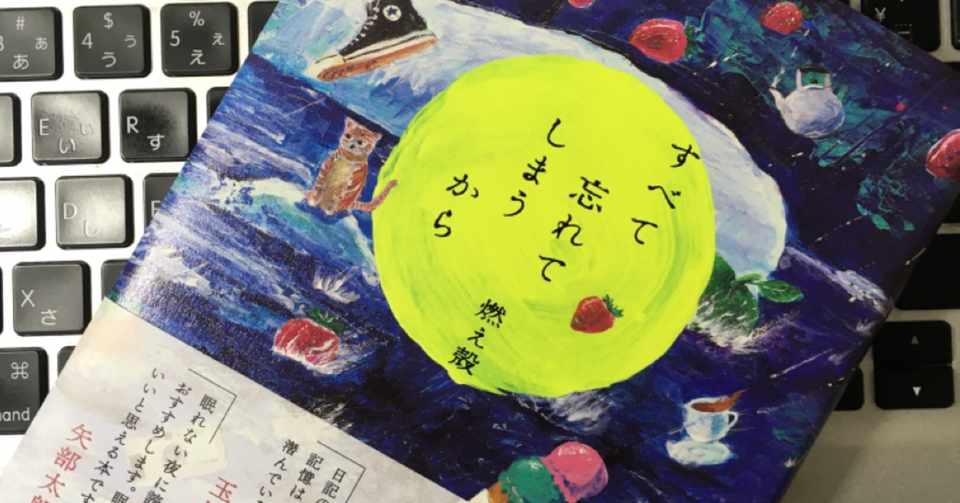 # ぁ
3 あ
$ ぅ
4 う
% ぇ
5 え
E ぃ
い
R す
D し
X さ
⌘
mand
¥
すべて
忘れて
しまう
から
燃え殻
日記の
記憶は
潜んでい
玉
眠れない夜に
おすすめします。眠
いいと思える本です
矢部太郎